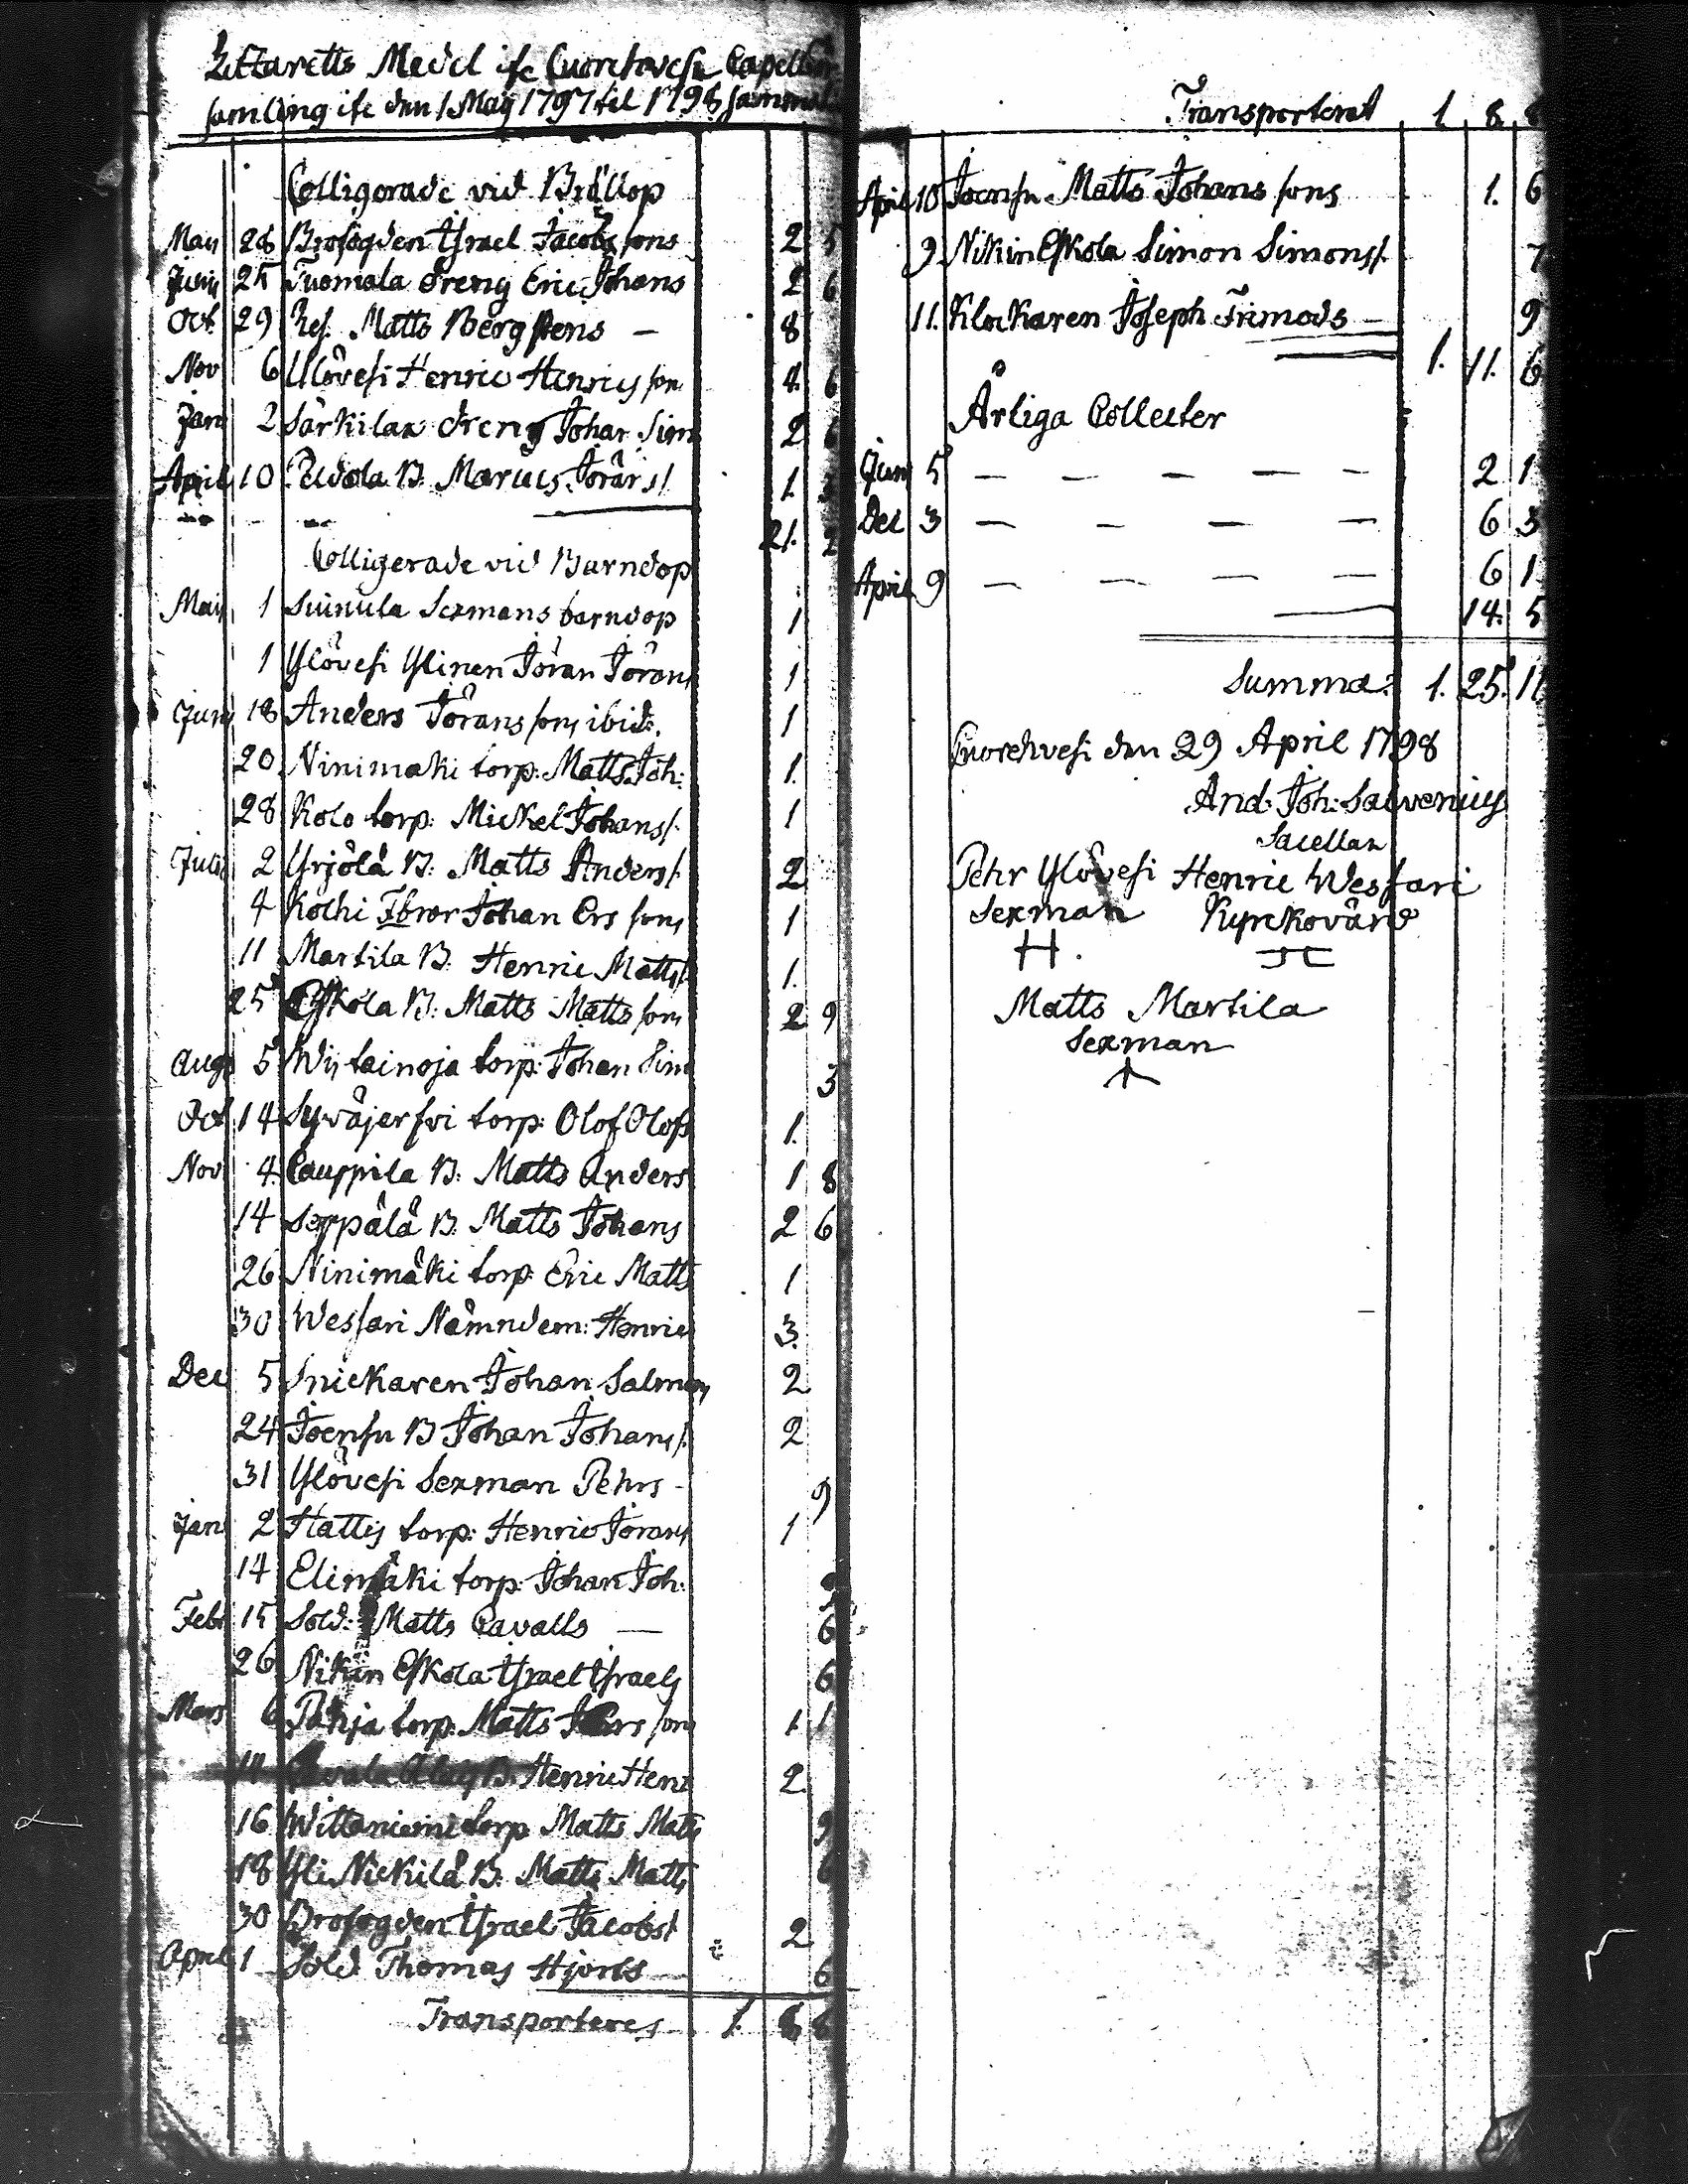 Lettaretts Medel ifr Cuorehvesi Capell
samling ifr den 1 Maij 1797 til 1798
Colligerade vid Bröllop
Maij 28 Brofogden Israel Jacobs sons 2 5
Junij 25 Tuomala Dreng Eric Johans 2 6
Oct 29 Ref. Matts Bergstens — 8
Nov 6 Ylövesi Henric Henrics son 4. 6
Jan 2 Särkilax dreng Johan Sim 2 6
April 10 B. Marcus Jörans/ 1. 3
21. 2
Colligerade vid Barndop
Maij 1 Suinula Sexmans barndop 1
1 Ylövesi Ylinen Jöran Jörans 1
Junij 18 Anders Jörans sons ibid: 1
20 Ninimaki torp: Matts Joh: 1.
28 Kolo torp: Mickel Johans/: 1
Julij 2 Yrjölä B: Matts Anders/: 2
4 Kochi Johan Ers sons 1
11 Martila B: Henric Matts/: 1.
25 Eskola B: Matts Matts sons 2 9
Aug 5 Wijtainoja torp: Johan Sim 3
Oct 14 Syväjerfvi torp: Olof Olofs 1.
Nov 4 Cauppila B: Matts Anders 1 8
14 Seppälä B: Matts Johans 2 6
26 Ninimäki torp: Eric Matts 1
30 Wesfari Nämndem: Henrics 3.
Dec 5 Snickaren Johan Salmens 2
24 Joensu B Johan Johans/: 2
31 Ylövesi Sexman Pehrs - 9
Jan 2 Hattis torp: Henric Jörans 1
14 Elimäki torp: Johan Joh: 9
Feb 15 Sold: Matts Cavalls — 6
26 Nikin Eskola Israel Israels 6
Mars 6 Pohja torp: Matts sons 1. 1
14 B. Henric Henr 2
16 Wittaniemi torp Matts Matts 9
18 Yli Nickilä B: Matts Matts 6
30 Brofogden Israel Jacobs/: 2
April 1 Sold Thomas Hjorts 6
Transporteres 1. 8 8
Transporterat 1. 8. 8
April 10 Joensu Matts Johans sons 1. 6
9 Nikin Eskola Simon Simons/: 7
11. Klockaren Joseph Frimods — 9
1. 11. 6
Årliga Collecter
Junij 5 — — — — — 2 1
Dec 3 — — — — 6 3
April 9 — — — — 6 1
14. 5
Summa: 1. 25. 11
Cuorehvesi den 29 April 1798
And: Joh: Salvenius
Sacellan
Pehr Ylövesi Henric Wesfari
Sexman Kyrckovärd
H.
Matts Martila
Sexman